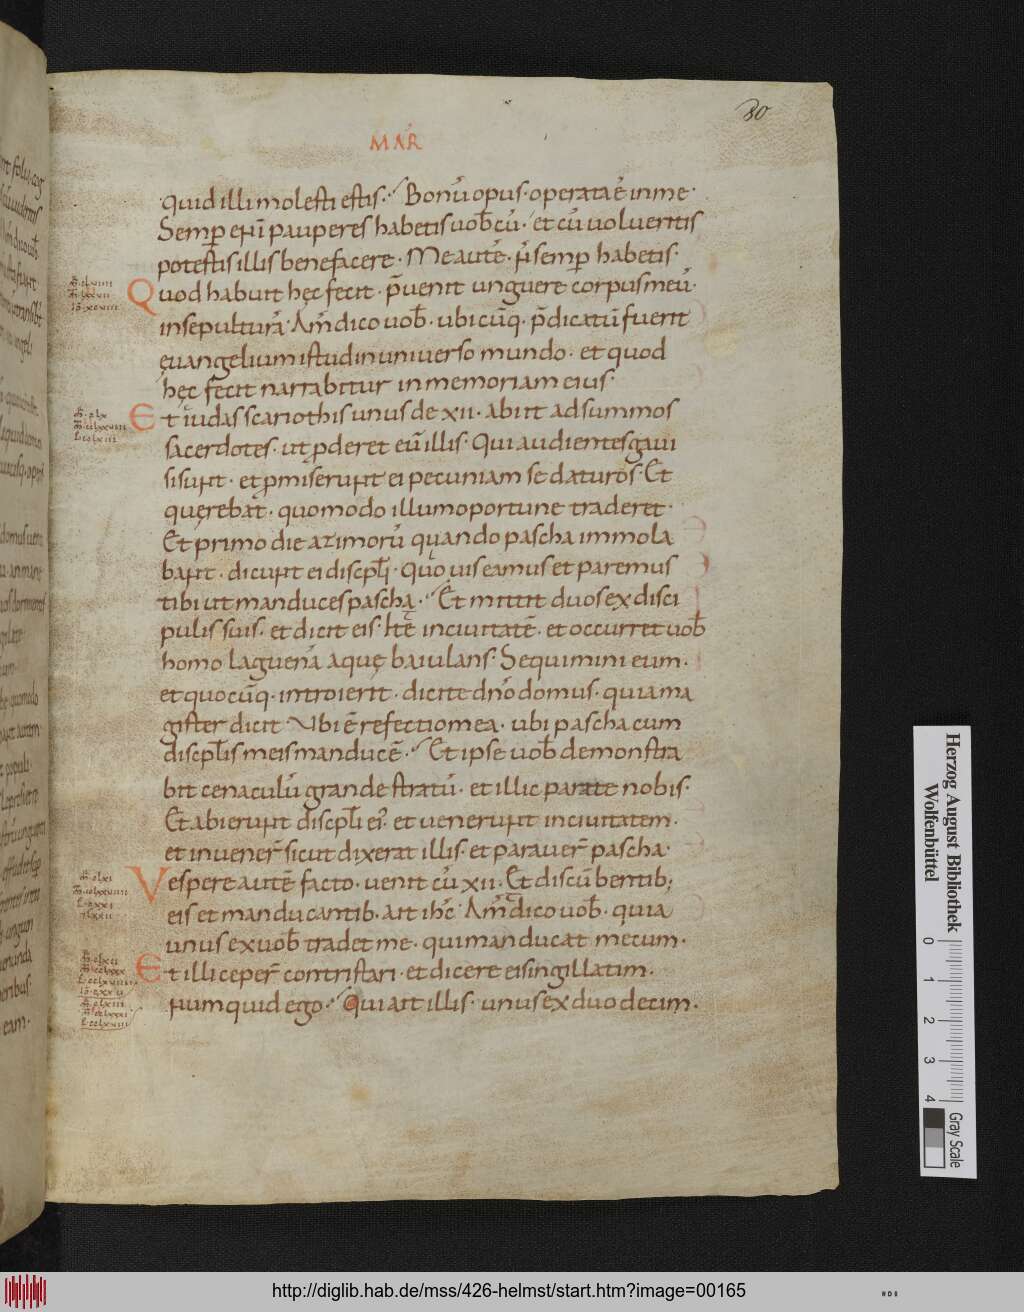 80
MAR̄
quid illi molesti estis· Bonū opus· operata ē in me·
Semp eni pauperes habetis uob̄cū· et cū uolueritis
potestis illis benefacere· Me autē· ñ semp habetis·
Quod habuit hęc fecit· p̄uenit unguere corpus meū·
in sepulturā· Am̄ dico uob̄· ubi cūq· p̄dicatū fuerit
euangelium istud in uniuerso mundo· et quod
hęc fecit narrabitur in memoriam eius·
Et iudas scariothis unus de xii· abiit ad summos
sacerdotes· ut pderet eū illis· Qui audientes gaui
si sunt· et pmiserunt ei pecuniam se daturos· Et
querebat· quomodo illum oportune traderet·
Et primo die azimorū quando pascha immola
bant· dicunt ei discpl̄i· Quo uis eamus et paremus
tibi ut manduces pascha· Et mittit duos ex disci
pulis suis· et dicit eis· Ite in ciuitatē· et occurret uob̄
homo laguenā aquę baiulans· Sequimini eum·
et quocūq· introierit· dicite dn̄o domus· quia ma
gister dicit Ubi ē refectio mea· ubi pascha cum
discpl̄is meis manducē· Et ipse uob̄ demonstra
bit cenaculū grande stratū· et illic parate nobis·
Et abierunt discpl̄i ei· et uenerunt in ciuitatem·
et inuener̄ sicut dixerat illis· et parauer̄ pascha·
Vespere autē facto· uenit cū xii· Et discūbentib;
eis et manducantib· ait ihc̄ Am̄ dico uob̄· quia
unus ex uob̄ tradet me· qui manducat mecum·
Et illi ceper̄ contristari· et dicere ei singillatim·
numquid ego· Qui ait illis· unus ex duodecim·
Herzog August Bibliothek
Wolfenbüttel
0 1 2 3 4
Gray Scale
http://diglib.hab.de/mss/426-helmst/start.htm?image=00165